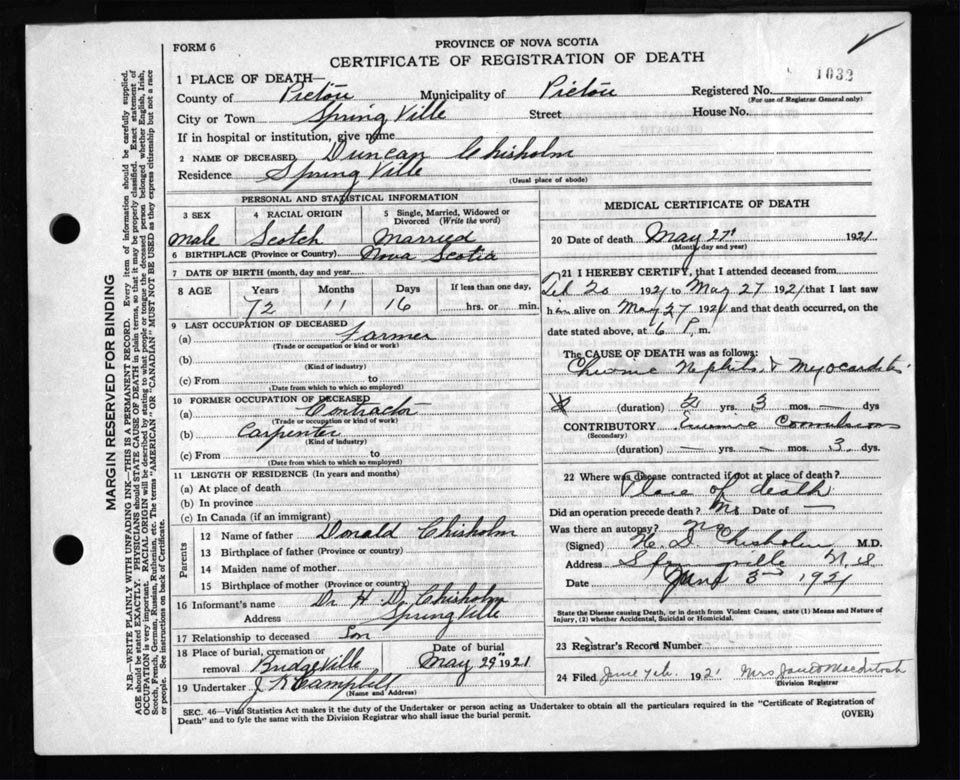 FORM 6
PROVINCE OF NOVA SCOTIA
CERTIFICATE OF REGISTRATION OF DEATH
1033
MARGIN RESERVED FOR BINDING
N.B.—WRITE PLAINLY WITH UNFADING INK—THIS IS A PERMANENT RECORD. Every item of information should be carefully supplied.
AGE should be stated EXACTLY. PHYSICIANS should STATE CAUSE OF DEATH in plain terms, so that it may be properly classified. Exact statement of
OCCUPATION is very important. RACIAL ORIGIN will be described by stating to what people or tongue the deceased person belonged whether English, Irish,
Scotch, French, German, Russian, Ruthenian, etc. The terms "AMERICAN" OR "CANADIAN" MUST NOT BE USED as they express citizenship but not a race
or people. See instructions on back of Certificate.
1 PLACE OF DEATH—
County of Pictou Municipality of Pictou Registered No.
(For use of Registrar General only)
City or Town Spring Ville Street House No.
If in hospital or institution, give name
2 NAME OF DECEASED Duncan Chisholm
Residence Spring Ville
(Usual place of abode)
PERSONAL AND STATISTICAL INFORMATION
3 SEX 4 RACIAL ORIGIN 5 Single, Married, Widowed or Divorced (Write the word)
Male Scotch Married
6 BIRTHPLACE (Province or Country) Nova Scotia
7 DATE OF BIRTH (month, day and year)
8 AGE Years Months Days If less than one day,
72 11 16 hrs. or min.
9 LAST OCCUPATION OF DECEASED
(a) Farmer
(Trade or occupation or kind of work)
(b)
(Kind of industry)
(c) From to
(Date from which to which so employed)
10 FORMER OCCUPATION OF DECEASED
(a) Contractor
(Trade or occupation or kind of work)
(b) Carpenter
(Kind of industry)
(c) From to
(Date from which to which so employed)
11 LENGTH OF RESIDENCE (In years and months)
(a) At place of death
(b) In province
(c) In Canada (if an immigrant)
Parents
12 Name of father Donald Chisholm
13 Birthplace of father (Province or country)
14 Maiden name of mother
15 Birthplace of mother (Province or country)
16 Informant's name Dr H. D. Chisholm
Address Spring Ville
17 Relationship to deceased Son
18 Place of burial, cremation or removal Bridgeville
Date of burial
May 29" 1921
19 Undertaker J H Campbell
(Name and Address)
MEDICAL CERTIFICATE OF DEATH
20 Date of death May 27" 1921
(Month, day and year)
21 I HEREBY CERTIFY, that I attended deceased from
Feb 20 1921 to May 27 1921 that I last saw
him alive on May 27 1921 and that death occurred, on the
date stated above, at 6 P. m.
The CAUSE OF DEATH was as follows:
Chronic Nephritis & Myocarditis
(duration) 2 yrs. 3 mos. — dys
CONTRIBUTORY Uremic Convulsions
(Secondary)
(duration) — yrs. — mos. 3 dys.
22 Where was disease contracted if not at place of death?
Place of death
Did an operation precede death? No Date of —
Was there an autopsy? No
(Signed) H. D. Chisholm M.D.
Address Springville N.S
Date June 3rd 1921
State the Disease causing Death, or in death from Violent Causes, state (1) Means and Nature of
Injury, (2) whether Accidental, Suicidal or Homicidal.
23 Registrar's Record Number
24 Filed June 7th. 1921 Mrs. Janet MacIntosh
Division Registrar
SEC. 46—Vital Statistics Act makes it the duty of the Undertaker or person acting as Undertaker to obtain all the particulars required in the "Certificate of Registration of
Death" and to fyle the same with the Division Registrar who shall issue the burial permit.
(OVER)